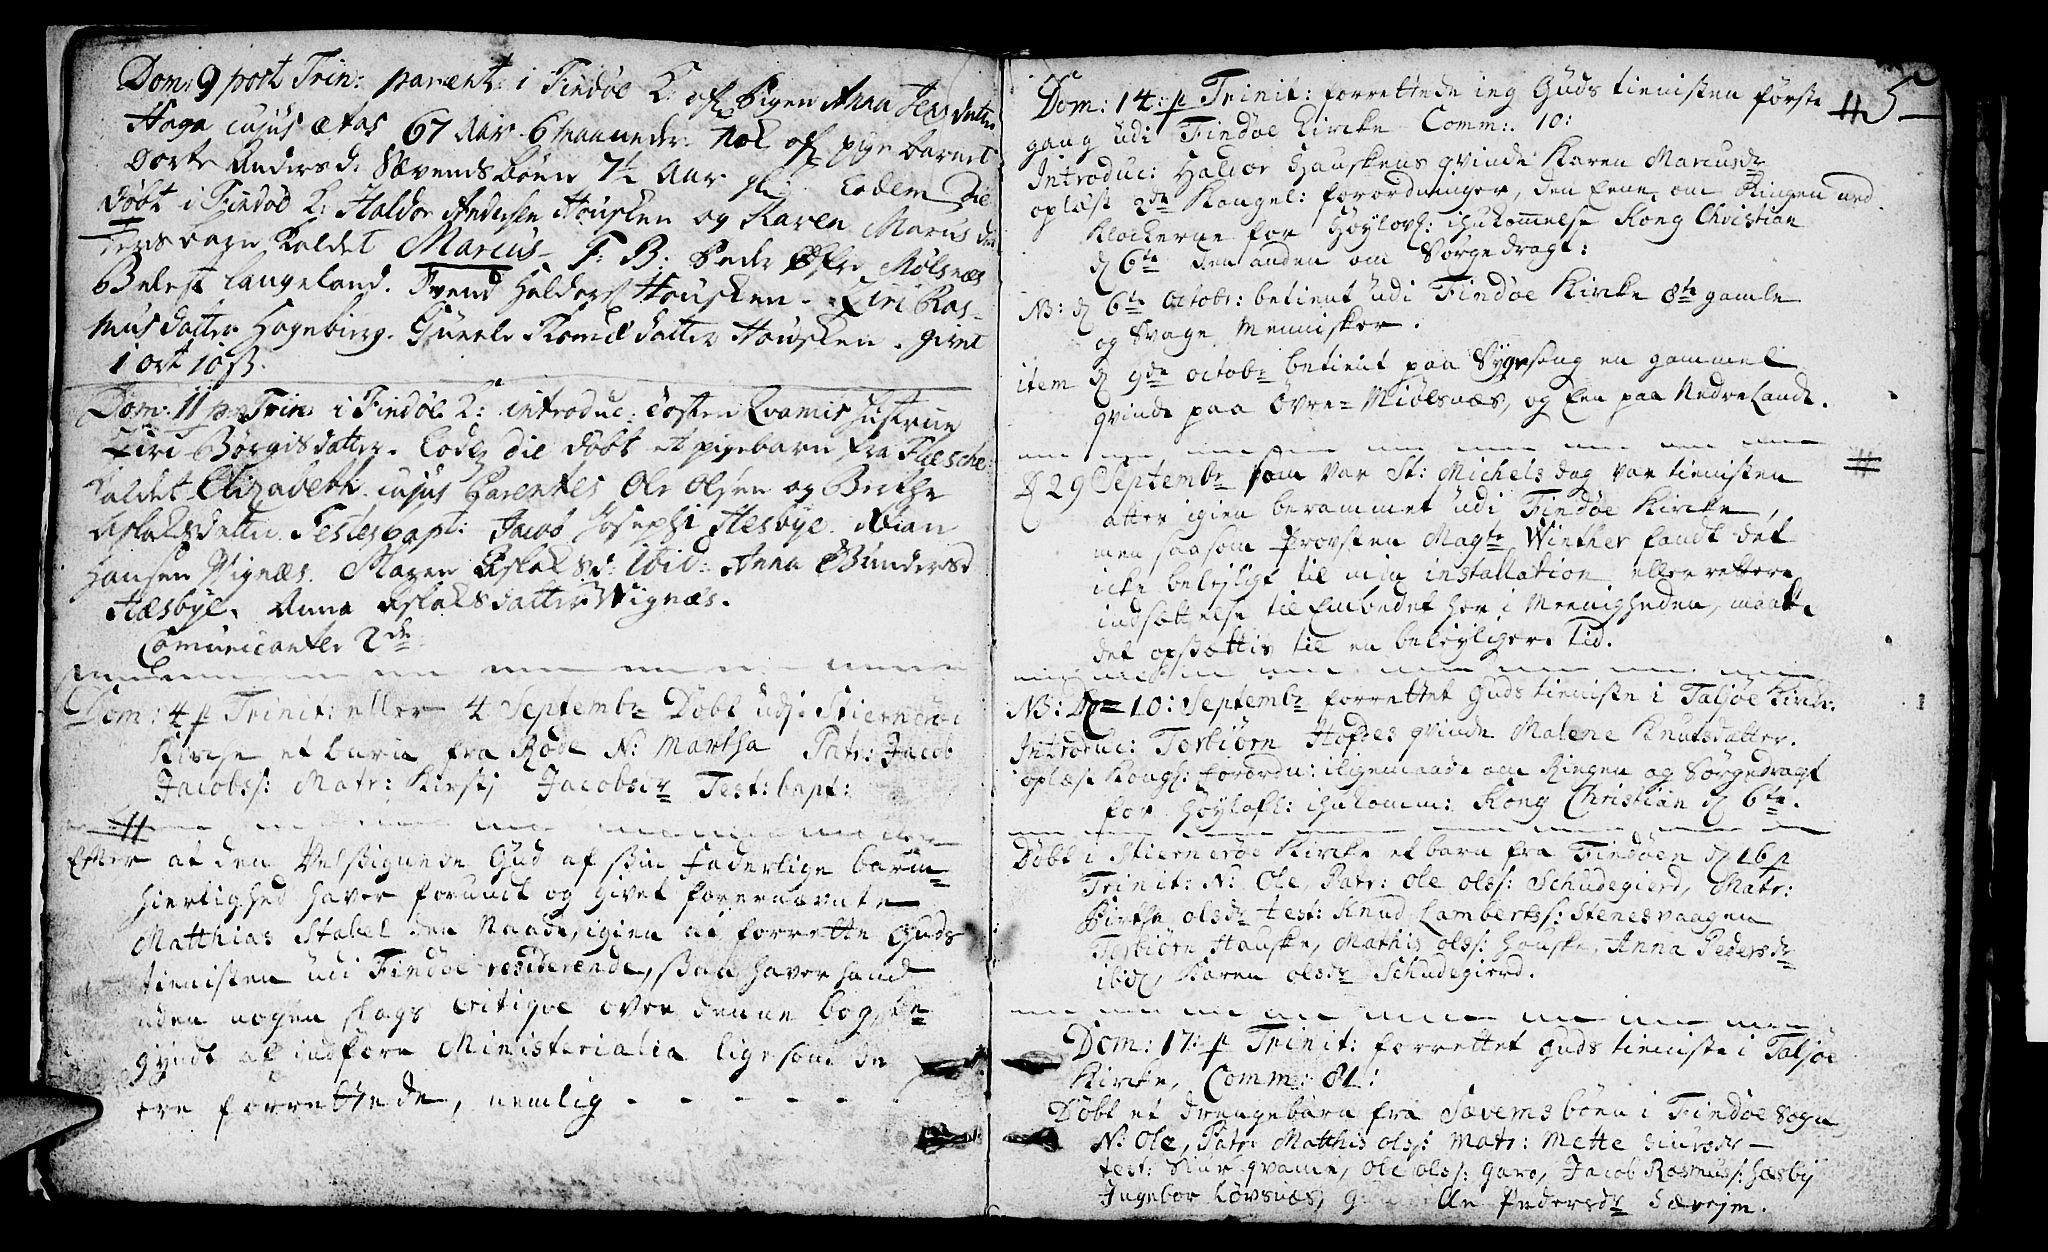 Dom: 9 post Trin: parent: i Findøe K: afl: Pigen Anna Jens datter
Haga cujus ætas 67 Aar 6 maaneder. Nok afl: pige barnet
Dorte Anders d: Sævends bøen 7½ Aar gl: Eodem Die
døbt i Findøe K: Haldor Andersen Housken og Karen Marcus dat
ters barn kaldet Marcus. F: B: Peder Mølsnæs
langeland. Svend Haldors: Housken. Siri Ras-
mus datter Hagebierg. Housken. givet
1 ort 10 s.
Dom: 11 p: Trin: i Findøe K: introduc: Tosten Qvamis Hustrue
Siri Børgis datter. Eod: die døbt et pigebarn fra
kaldet Elizabeth. cujus Parentes Ole Olsen og Birthe
Aslaks datter. Testes bapt: Jacob Josephs: Hesbye.
Hansen Vignæs. Maren Aslaks d: ibid: Anna Gunders d
Hæsbye. Anna Aslaks datter Wignæs.
Comunicanter 2de
Dom: 4 p Trinit: eller 4 Septembr Døbt udj Stiernerøe
Kirche et barn fra Røde N: Martha Patr: Jacob
Jacobss: Matr: Kirstj Jacobsdr Test: bapt:
#
Efter at den Velsignede Gud af sin Faderlige barm-
hiertighed haver forundt og givet forernævnte
Matthias Stabel den Naade, igien at forrette Guds
tienisten udi Findøe residerende, saa haver hand
uden nogen slags Critiqve over denne bog, be-
gyndt at indføre Ministerialia ligesom de
ere forrettede, nemlig - - - - - -
5
Dom: 14: p Trinit: forrettede ieg Guds tienisten første #
gang udi Findøe Kircke Comm: 10:
Introduc: Haldor Hauskens qvinde Karen Marcusdr
oplæst 2de Kongel: forordninger, den Eene om Ringen med
Klockerne for Høylovl: ihukommelse Kong Christian
d 6te den anden om Sørgedragt:
NB: d 6te Octobr: betient udi Findøe Kirke 8te gamle
og Svage Mennisker.
item d 9de octobr betient paa Sygeseng en gammel
qvinde paa Øvre-Miølsnæs, og Een paa Nedre Lande.
D 29 Septembr som var St: Michels dag var tienisten #
atter igien berammet udi Findøe Kirke,
men saasom Provsten Magtr Winther fandt det
icke belejligt til min installation, eller rettere
indsættelse til Embedet her i Meenigheden, maatte
det opsættis til en beleyligere Tid.
NB: D 10: Septembr forrettet Guds tieniste i Taljøe Kirke.
Introduc: Torbiørn Hofves qvinde Malene Knutsdatter.
oplæst Kongl: forordn: iligemaade om Ringen og Sørgedragt
for Høylofl: ihukomm: Kong Christian d 6te.
Døbt i Stiernerøe Kircke et barn fra Findøen d 16 p
Trinit: N: Ole, Patr: Ole Olss: Schudegierd, Matr:
Birthe olsdr test: Knud Lambertss: Stenesvaagen
Torbiørn Hauske, Mathis olss: Houske, Anna Pedersdr
ibid, Karen olsdr Schudegierd.
Dom: 17: p Trinit: forrettet Guds tieniste i Taljøe
Kirke, Comm: 81:
Døbt et drengebarn fra Sævemsbøen i Findøe Sogn
N: Ole, Patr: Matthis olss: Matr: Mette Siursdr -
test: Siur qvame, Ole olss: gare, Jacob Rasmuss: Hæsby
Ingebor Løvsnæs, Pedersdr Sævejm.